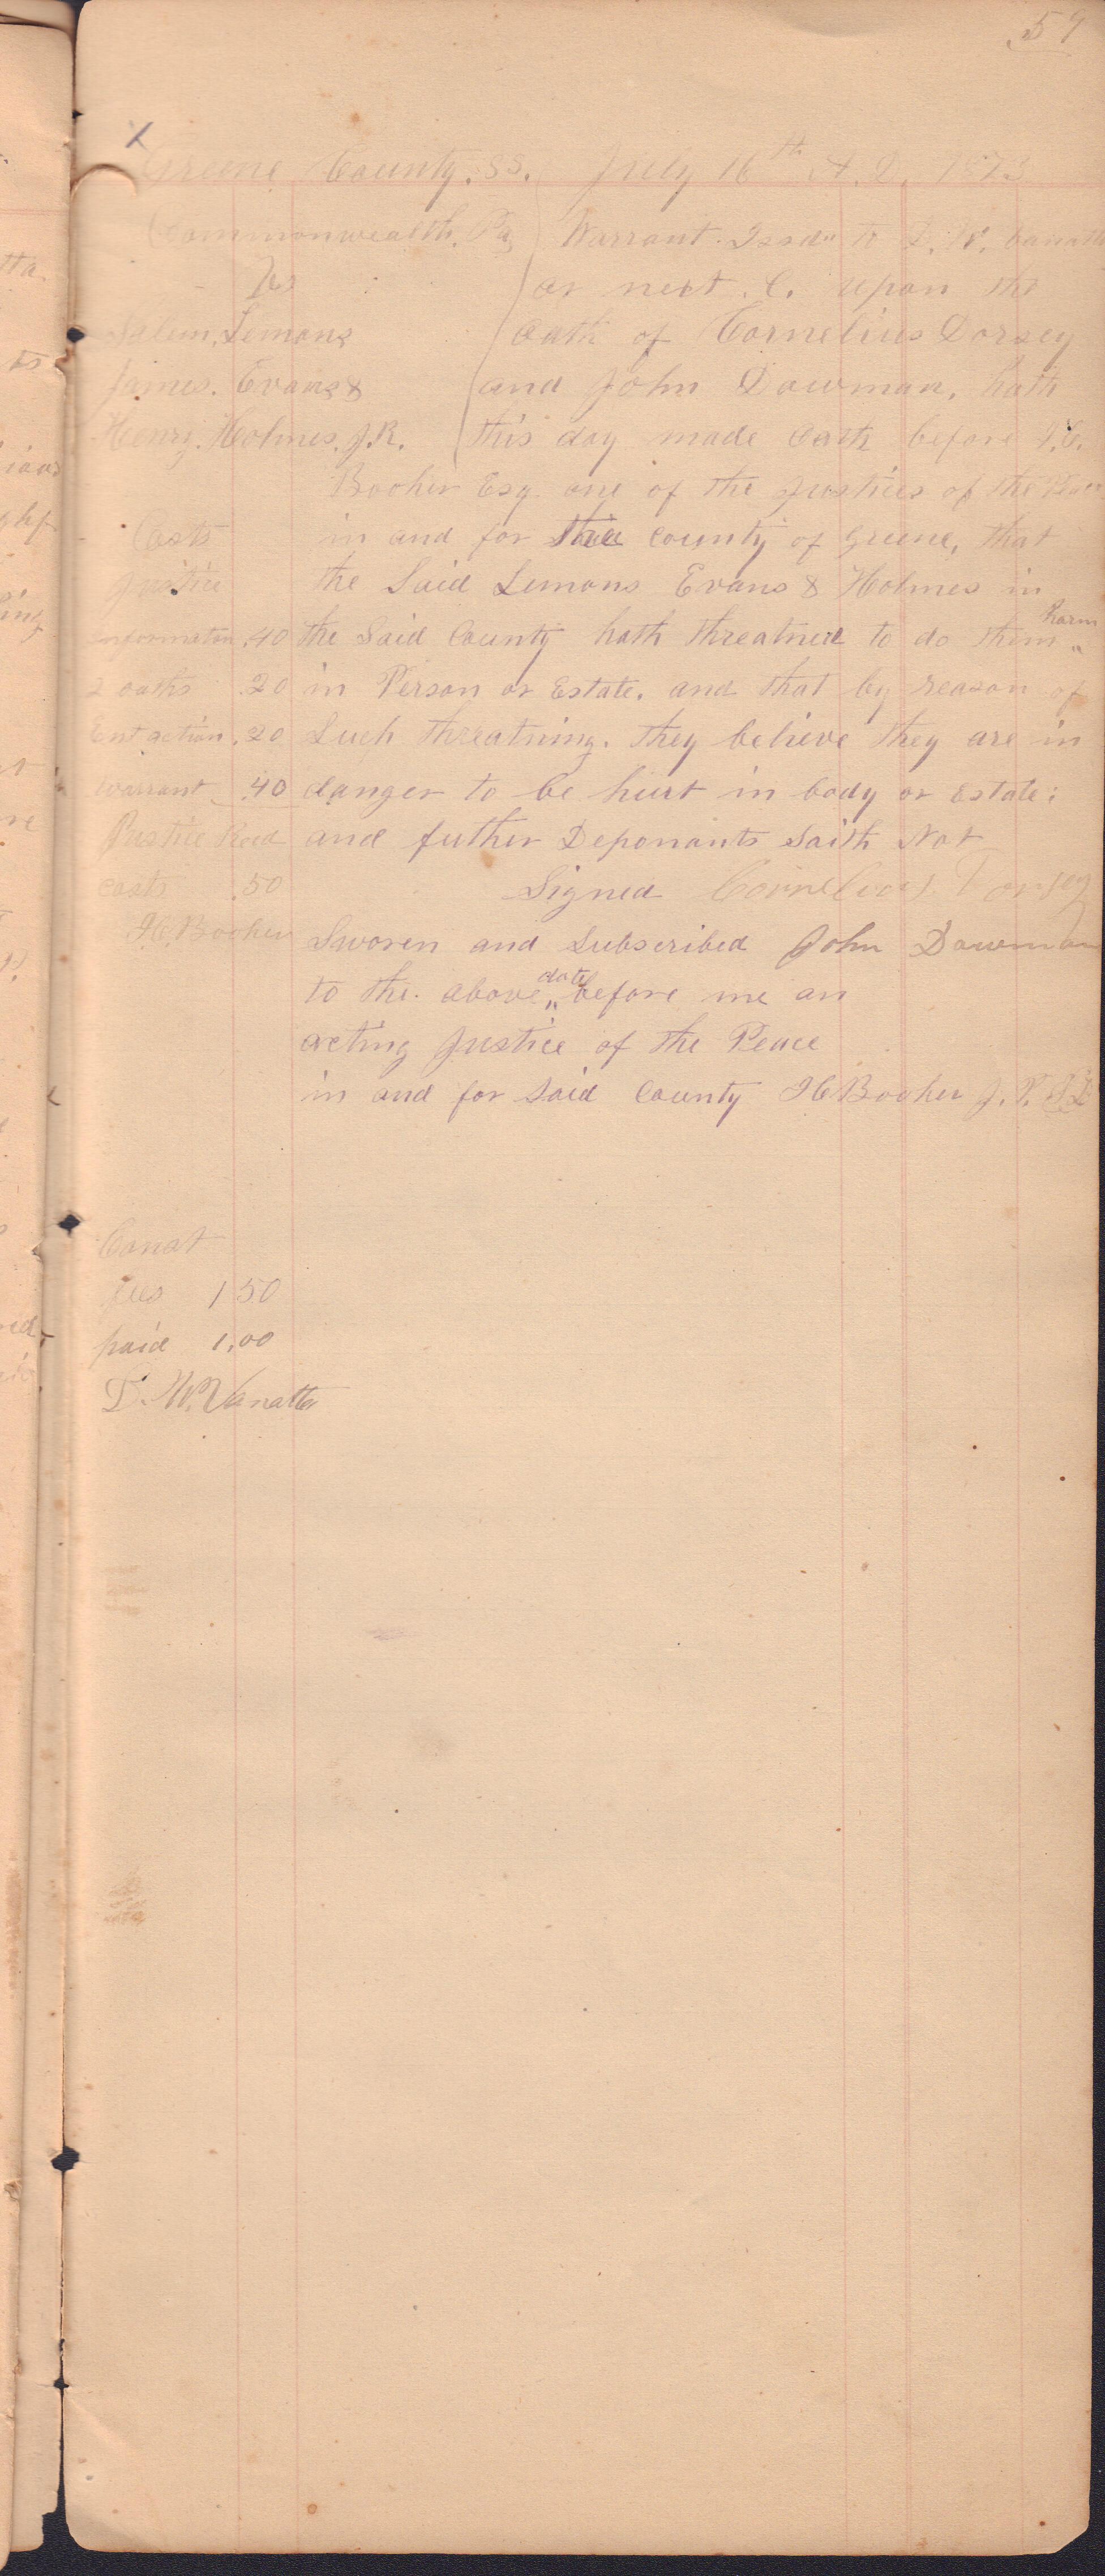 57
X
Greene County. SS. July 16th A.D. 1873
Commonwealth, Pa, Warrant Issd" to D. W. Vanatta
vs or next C. upon the
Salem, Lemons oath of Cornelius Dorsey
James. Evans & and John Dowman, hath
Henry. Holmes. J.R. this day made oath before I.C.
Booher Esq one of the justices of the Peace
Costs in and for the county of Greene, that
Justice the Said Lemons Evans & Holmes in
information .40 the Said County hath threatned to do them " harm
2 oaths .20 in Person or Estate. and that by reason of
Ent action .20 Such threatning. they believe they are in
warrant .40 danger to be hurt in body or Estate;
Justice Recd and futher Deponants Saith Not
costs .50 Signed Cornelious Dorsey
I.C. Booher Sworen and Subscribed John Dowman
to the above " date before me an
acting Justice of the Peace
in and for Said County I C Booher J. P.
Const
fees 1 50
paid 1.00
D. W. Vanatta